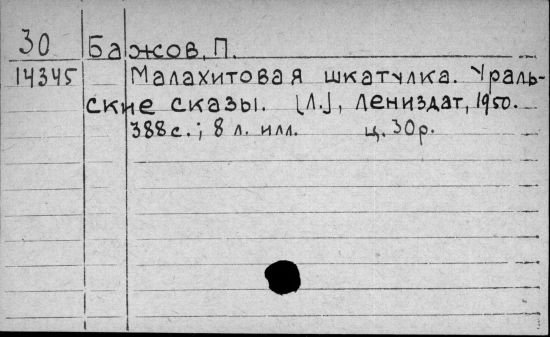 30 Бажов, П.
14345 Малахитовая шкатулка. Ураль-
ские сказы. [Л.], Лениздат, 1950.
388 с.; 8 л. илл. ц. 30 р.